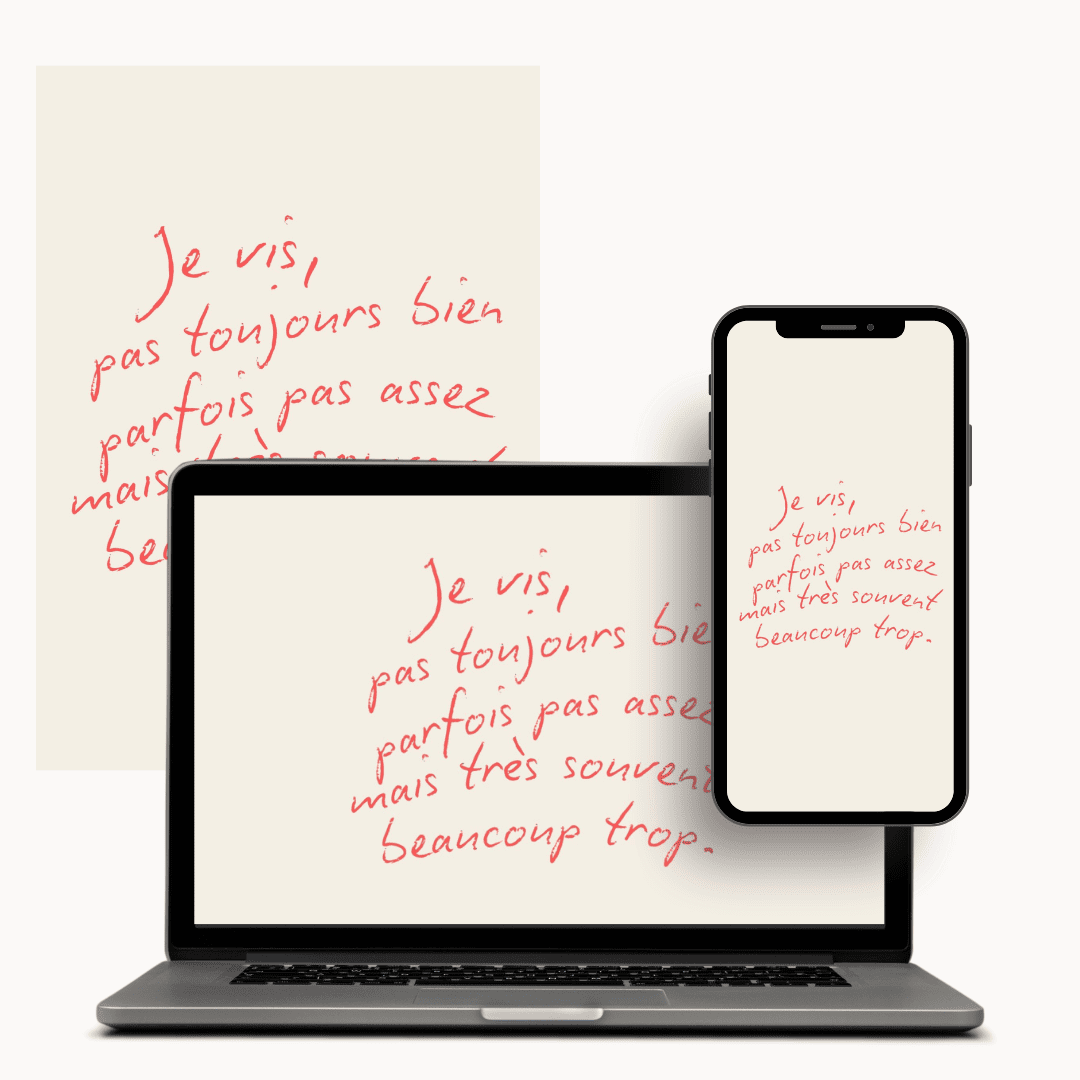 Je vis,
pas toujours bien
parfois pas assez
mais très souvent
Je vis,
pas toujours bien
parfois pas assez
mais très souvent
beaucoup trop.
Je vis,
pas toujours bien
parfois pas assez
mais très souvent
beaucoup trop.